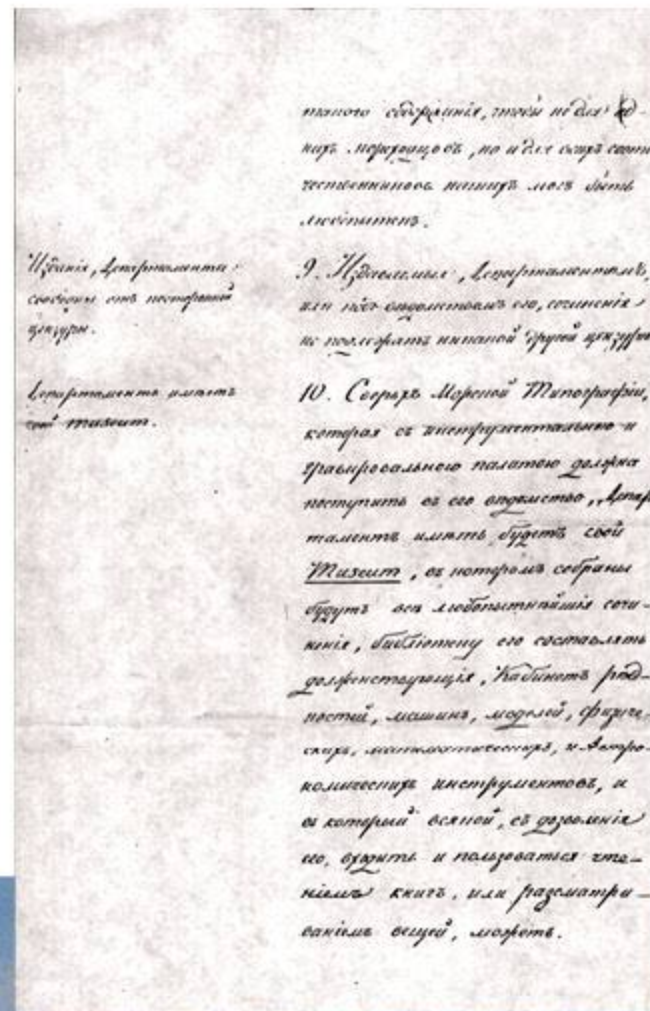 такого содержанія, чтобы не для од-
нихъ мореходцовъ, но и для всѣхъ соот
чественниковъ нашихъ могъ быть
любопытенъ.
Изданія Департамента
свободны отъ посторонней
цензуры.
9. Издаваемыя Департаментомъ,
или подъ вѣдомствомъ его, сочиненія
не подлежатъ никакой другой цензурѣ
Департаментъ имѣетъ
свой museum.
10. Сверхъ Морской Типографіи,
которая съ инструментальною и
гравировальною палатою должна
поступить въ его вѣдомство, Депар
таментъ имѣть будетъ свой
Museum, въ которомъ собраны
будутъ всѣ любопытнѣйшія сочи-
ненія, библіотеку его составлять
долженствующія, Кабинетъ рѣд-
костей, машинъ, моделей, физиче-
скихъ, математическихъ, и Астро-
номическихъ инструментовъ, и
въ который всякой, съ дозволенія
его, входить и пользоваться чте-
ніемъ книгъ, или разсматри-
ваніемъ вещей, можетъ.